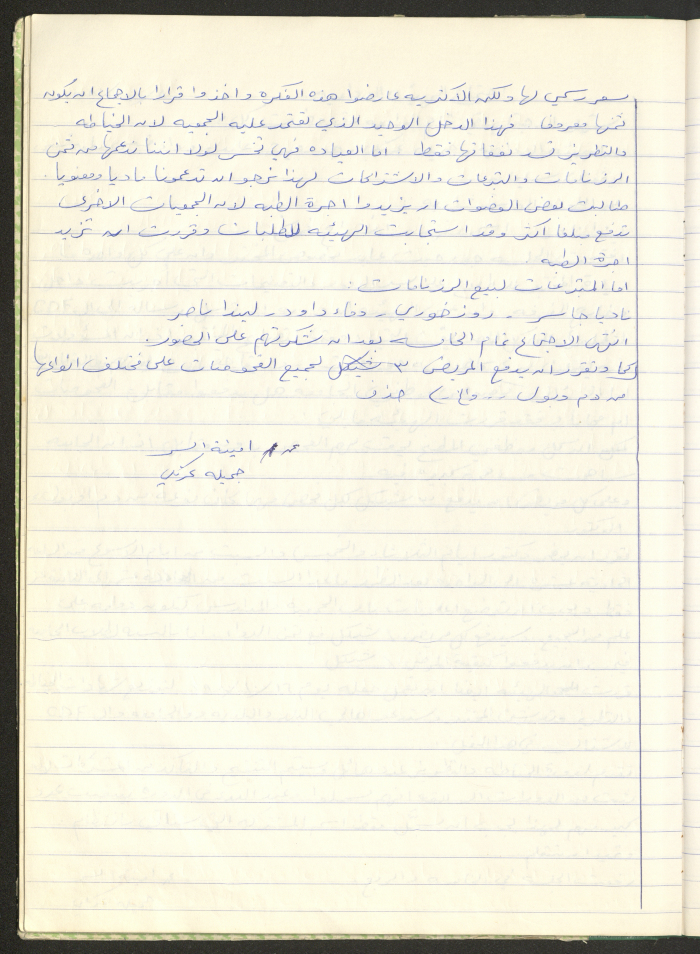 سعر رسمي لها ولكن الأكثريه عارضوا هذه الفكره واخذوا قرارا بالاجماع ان يكون
ثمنها معروفا فهذا الدخل الوحيد الذي تعتمد عليه الجمعيه لان الخياطه
والتطريز تسد نفقاتها فقط اما العياده فهي تخسر لولا اننا ندعمها من ثمن
الرزنامات والتبرعات والاشتراكات لهذا نرجو ان تدعمونا ماديا ومعنويا .
طالبت بعض العضوات ان يزيدوا اجرة الطبه لان الجمعيات الاخرى
تدفع مبلغا اكثر وقد استجابت الهيئه للطلبات وقررت ان تزيد
اجرة الطبه .
اما المتبرعات لبيع الرزنامات :
ناديا جاسر - روز خوري - وفاء داود - ليندا ناصر
انتهى الاجتماع تمام الخامسه بعد ان شكرتهم على الحضور.
كما وتقرر ان يدفع المريض ٣ شيكل لجميع الفحوصات على مختلف انواعها
من دم وبول حذف
امينة السر
جميله